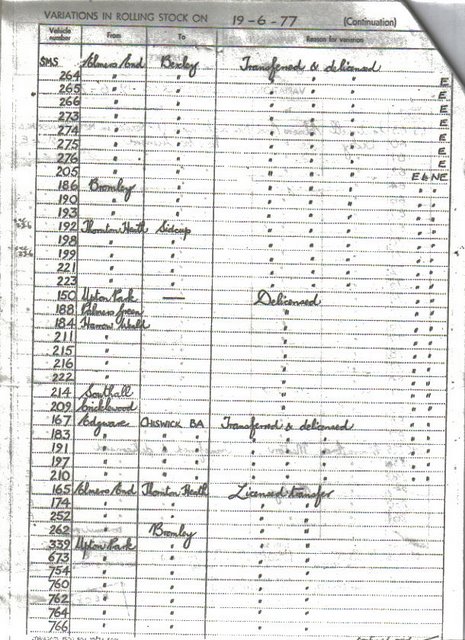 VARIATIONS IN ROLLING STOCK ON 19-6-77 (Continuation)
Vehicle number From To Reason for variation
SMS Elmers End Bexley Transferred & delicensed
264 " " " " " E
265 " " " " " E
266 " " " " " E
273 " " " " " E
274 " " " " " E
275 " " " " " E
276 " " " " " E
205 " " " " " E & NE
186 Bromley " " " " " "
190 " " " " " " "
193 " " " " " " "
192 Thornton Heath Sidcup " " " " "
198 " " " " " " "
199 " " " " " " "
221 " " " " " " "
223 " " " " " " "
150 Upton Park — Delicensed " "
188 Palmers Green " " "
184 Harrow Weald " " "
211 " " " "
215 " " " "
216 " " " "
222 " " " "
214 Southall " " "
209 Cricklewood " " "
167 Edgware CHISWICK BA Transferred & delicensed " "
183 " " " " " " " "
191 " " " " " " " "
197 " " " " " " " "
210 " " " " " " " "
165 Elmers End Thornton Heath Licensed transfer
174 " " " "
252 " " " "
262 " Bromley " "
339 Upton Park " " "
673 " " " "
754 " " " "
760 " " " "
762 " " " "
764 " " " "
766 " " " "